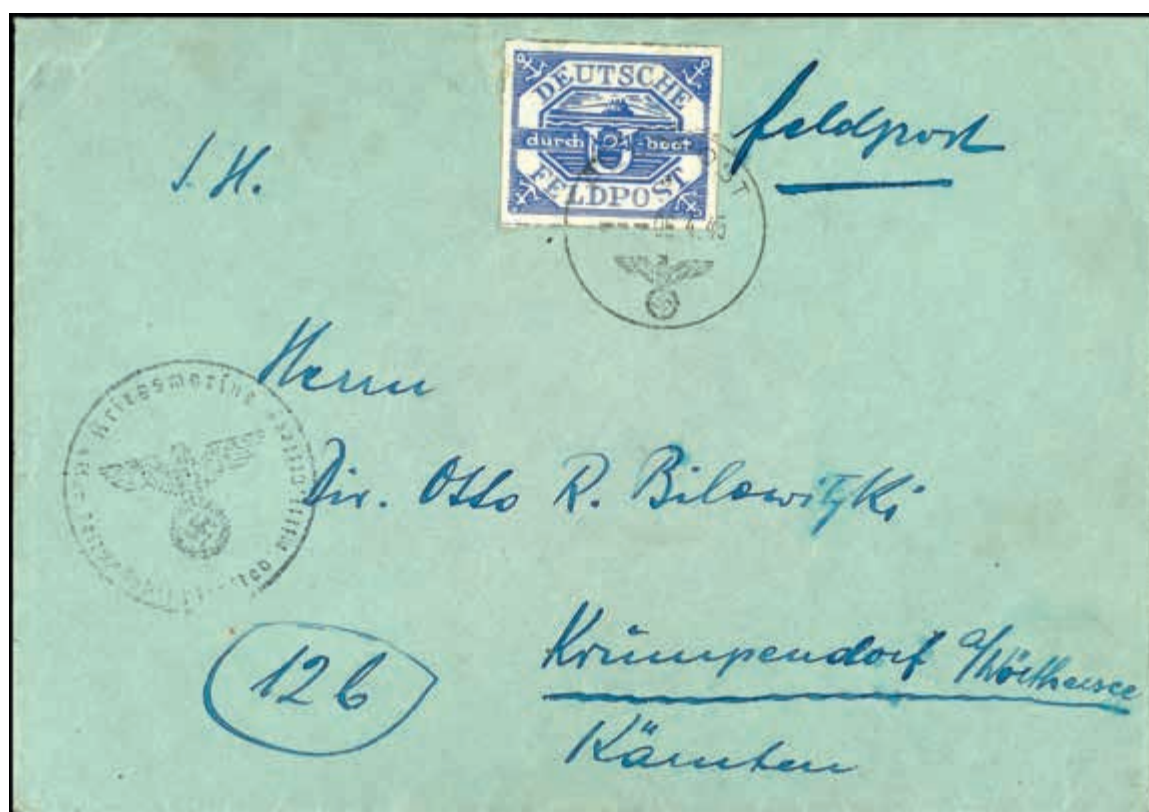 Feldpost
S. H.
DEUTSCHE
durch U-boot
FELDPOST
4. 45
Kriegsmarine
Herrn
Dir. Otto R. Bilowitzki
12b
Krumpendorf a/Wörthersee
Kärnten